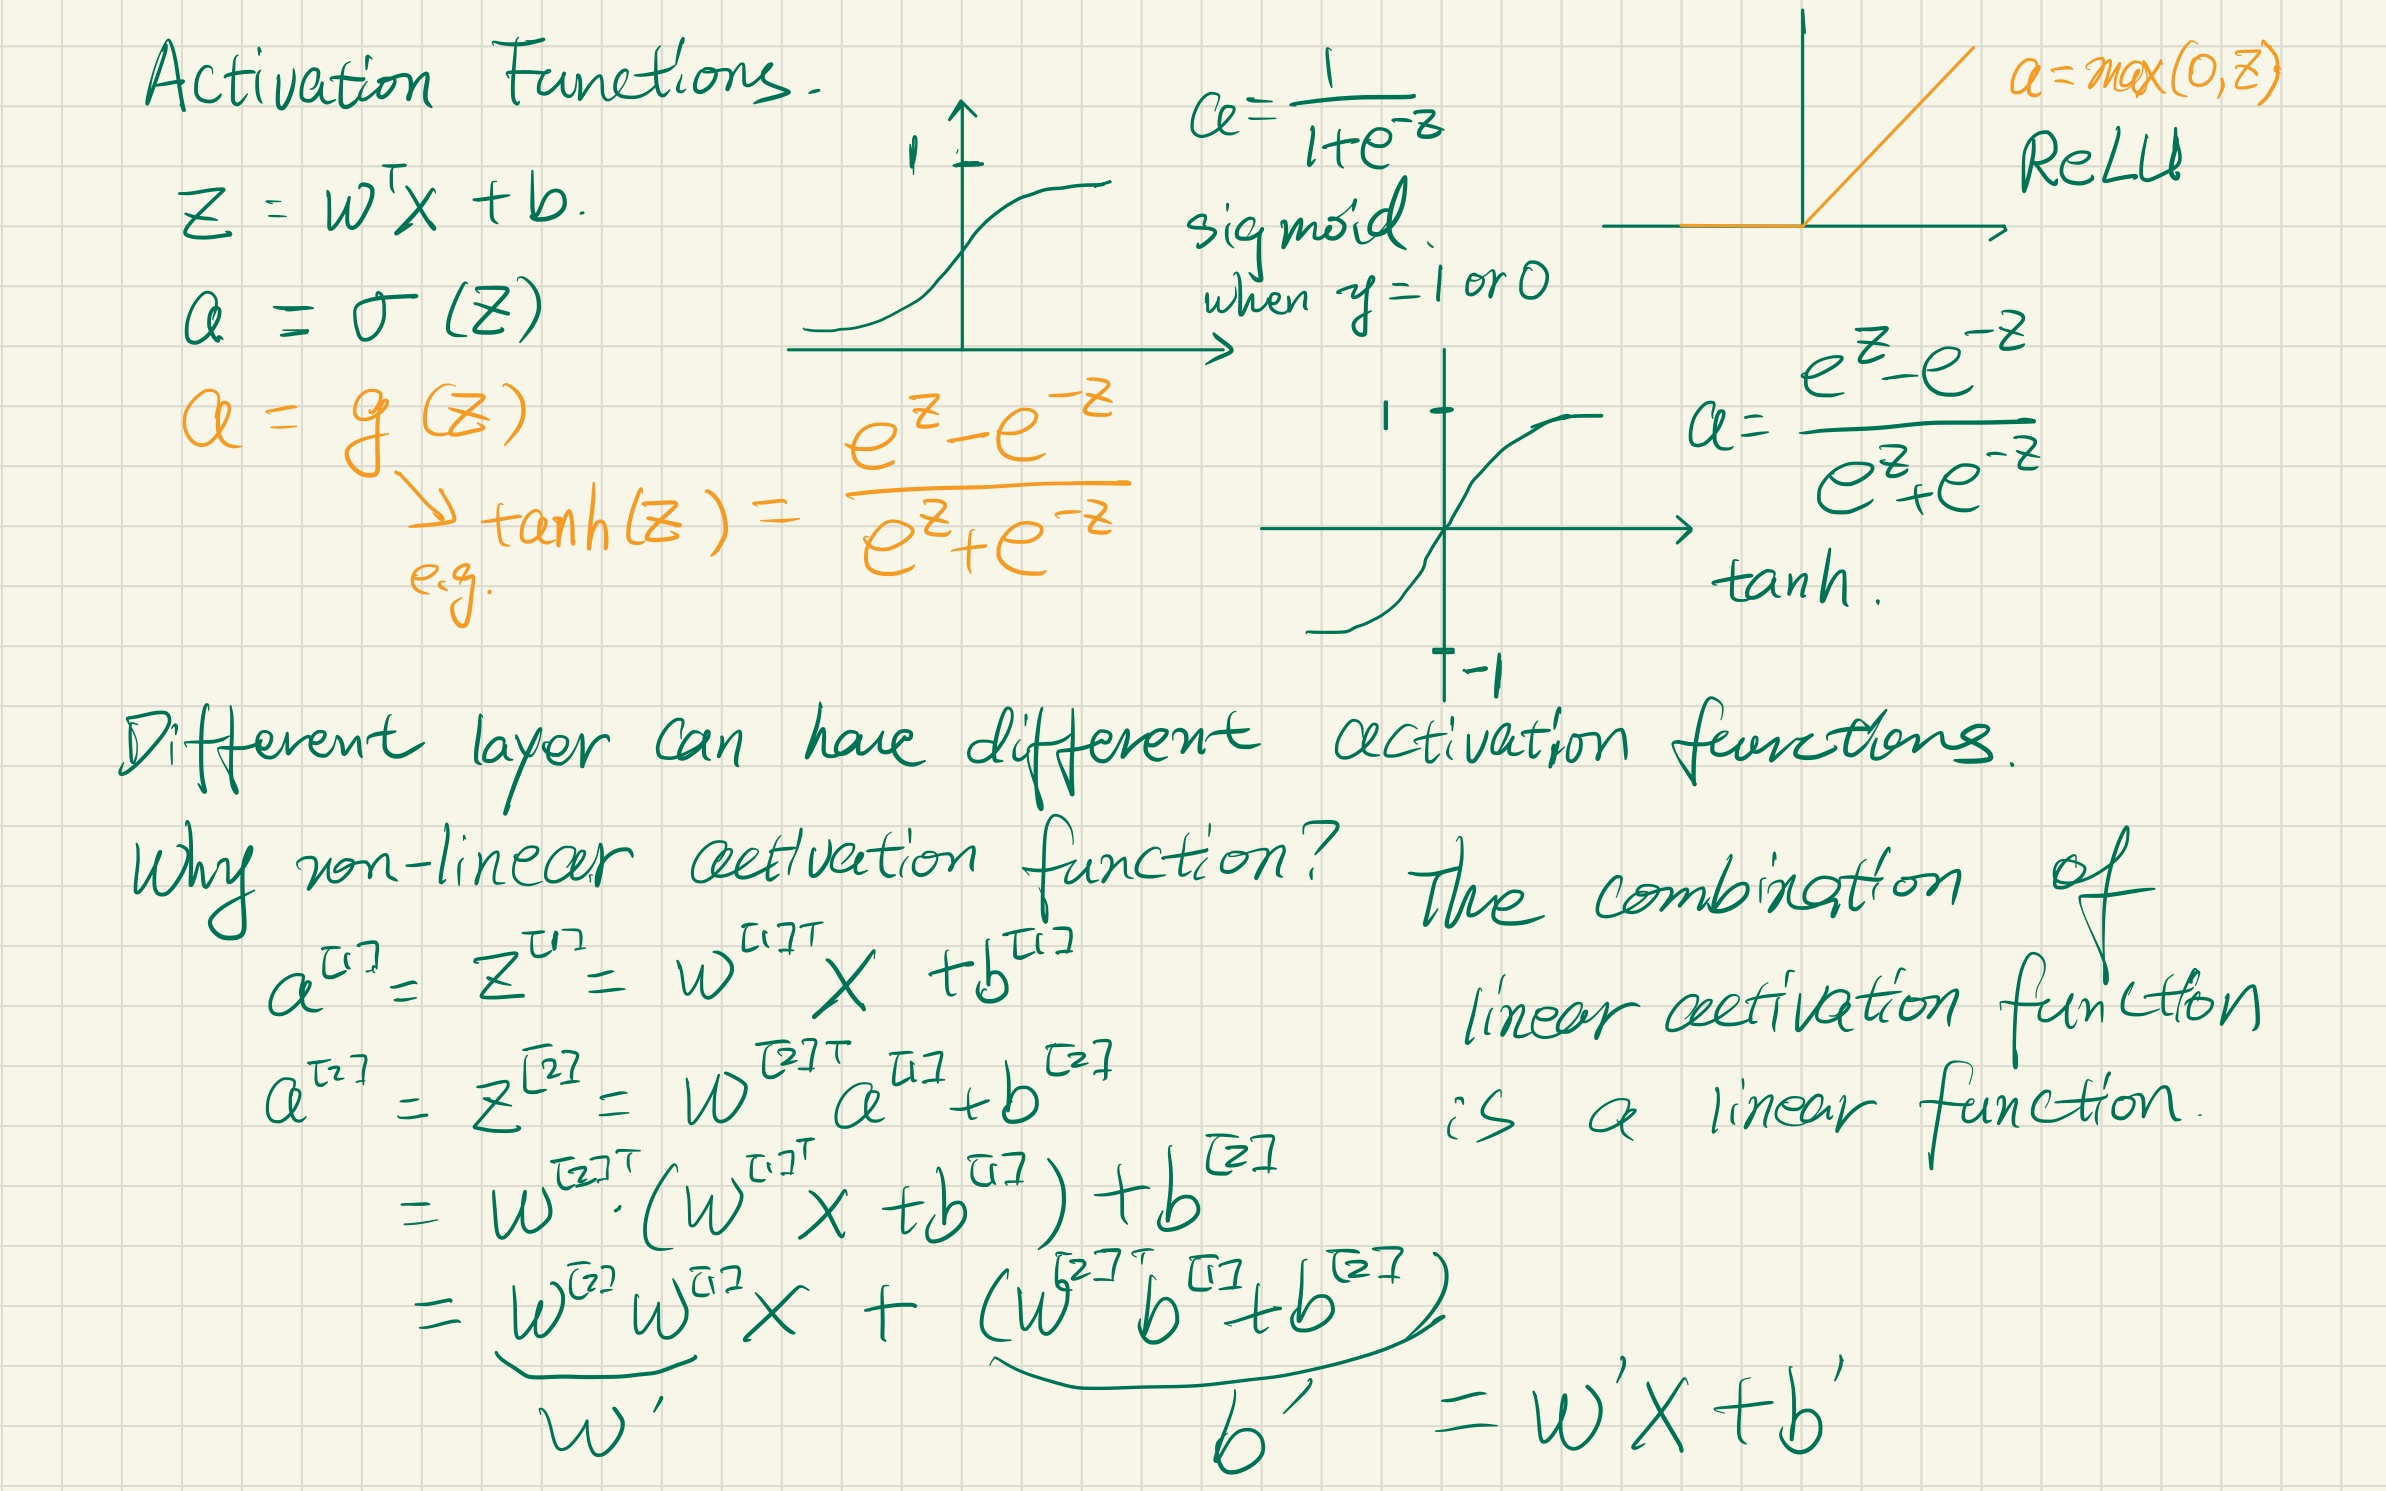 Activation Functions.
z = wᵀx + b.
a = σ(z)
a = g(z)
e.g.
tanh(z) = (e^z - e^-z) / (e^z + e^-z)
1
a = 1 / (1+e^-z)
sigmoid.
when y = 1 or 0
a = max(0, z)
ReLU
1
-1
a = (e^z - e^-z) / (e^z + e^-z)
tanh.
Different layer can have different activation functions.
Why non-linear activation function?
a^[1] = z^[1] = w^[1]ᵀ x + b^[1]
a^[2] = z^[2] = w^[2]ᵀ a^[1] + b^[2]
= w^[2]ᵀ · (w^[1]ᵀ x + b^[1]) + b^[2]
= w^[2] w^[1] x + (w^[2]ᵀ b^[1] + b^[2])
w' b' = w'x + b'
The combination of
linear activation function
is a linear function.